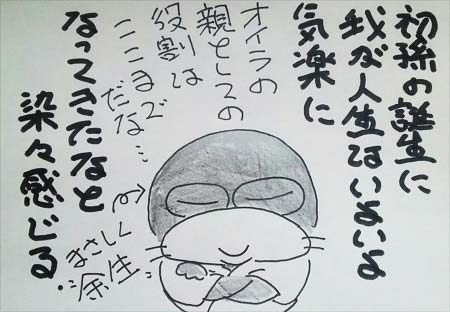 初孫の誕生に
我が人生はいよいよ
気楽に
なってきたなと
染々感じる.
オイラの
親としての
役割は
ここまで
だな…
まさしく
余生